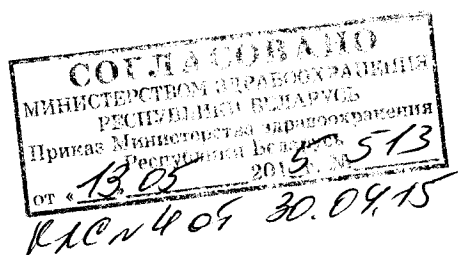 СОГЛАСОВАНО
МИНИСТЕРСТВОМ ЗДРАВООХРАНЕНИЯ
РЕСПУБЛИКИ БЕЛАРУСЬ
Приказ Министерства здравоохранения
Республики Беларусь
от «13.05 2015 г. № 513
КЛС №4 от 30.04.15